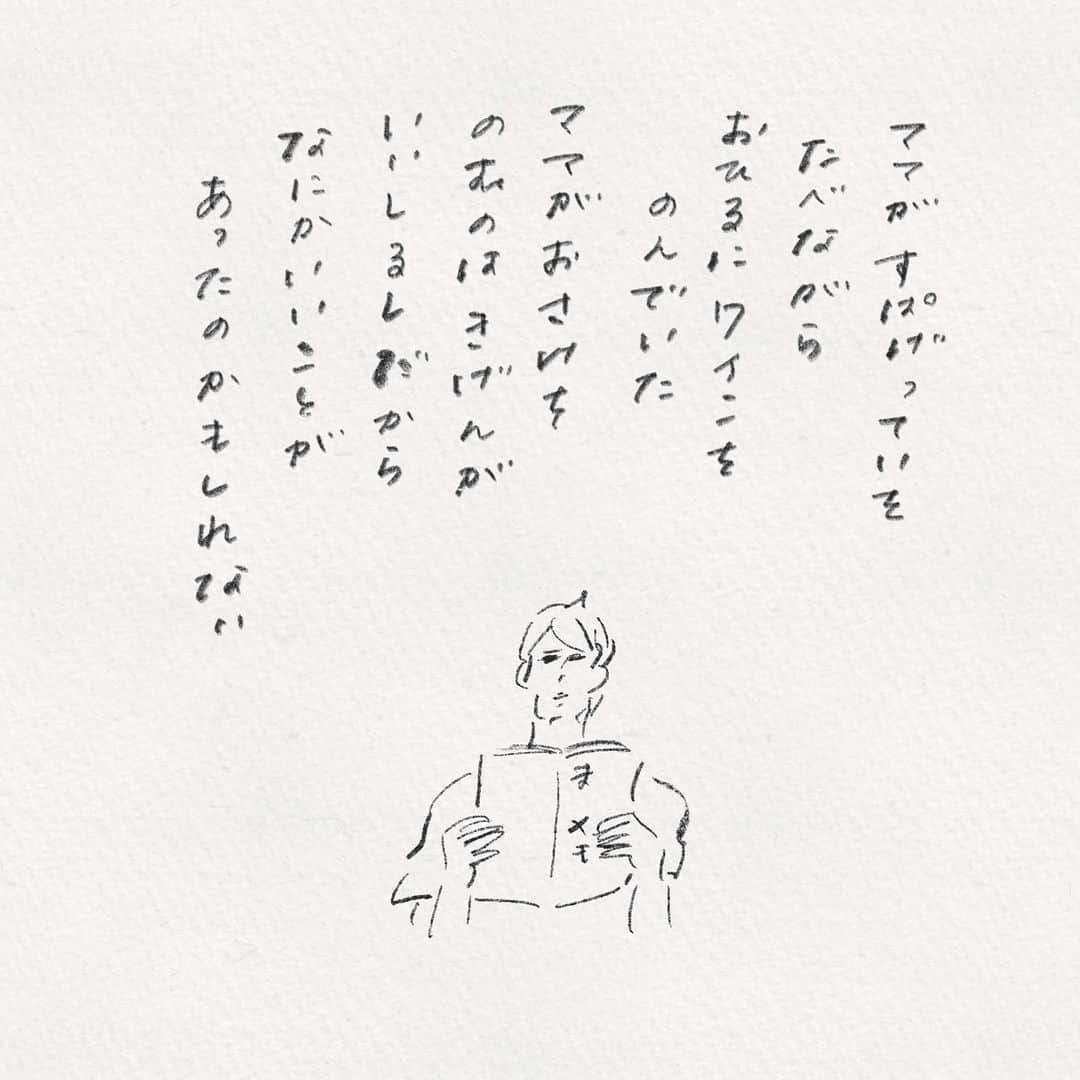 ママがすぱげっていを
たべながら
おひるにワインを
のんでいた
ママがおさけを
のむのはきげんが
いいしるしだから
なにかいいことが
あったのかもしれない
ま
メモ